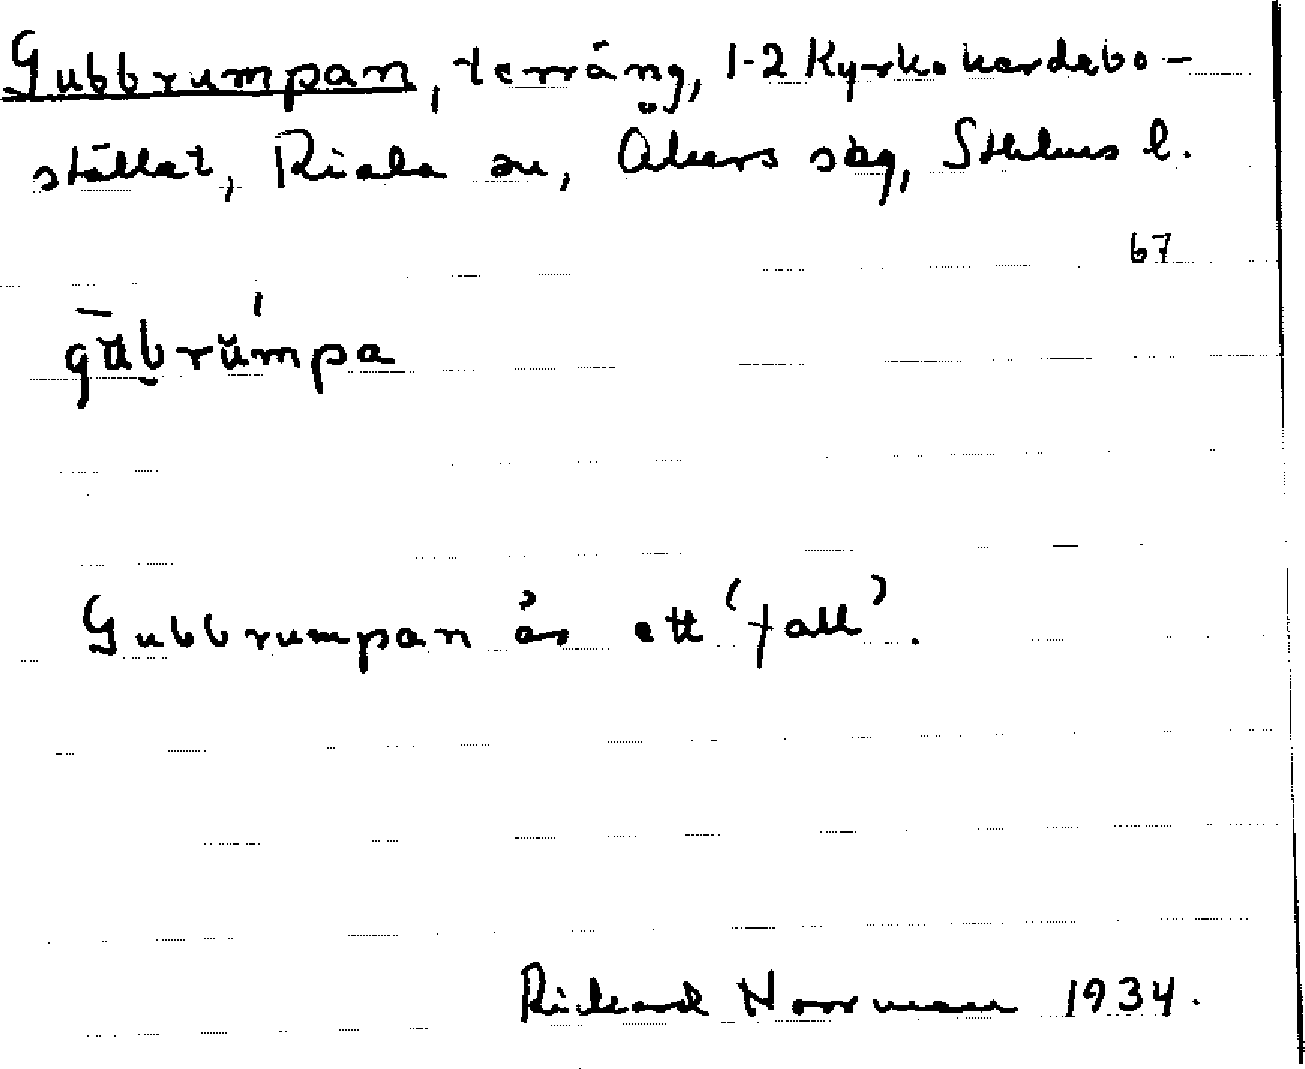 Gubbrumpan, terräng, 1-2 Kyrkoherdebo-
stället, Riala sn, Åkers sbg, Sthlms l.
67
gu̅brŭmpa
Gubbrumpan är ett 'fall'.
Rickard Norrman 1934.